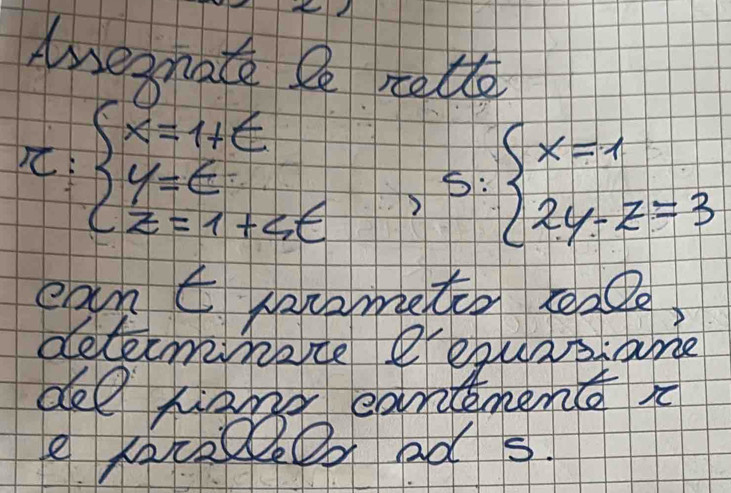 Assegnate le rette
r: { x = 1 + t
y = t
z = 1 + 4t , s: { x = 1
2y - z = 3
con t parametro reale,
determinare l'equazione
del piano contenente r
e parallelo ad s.